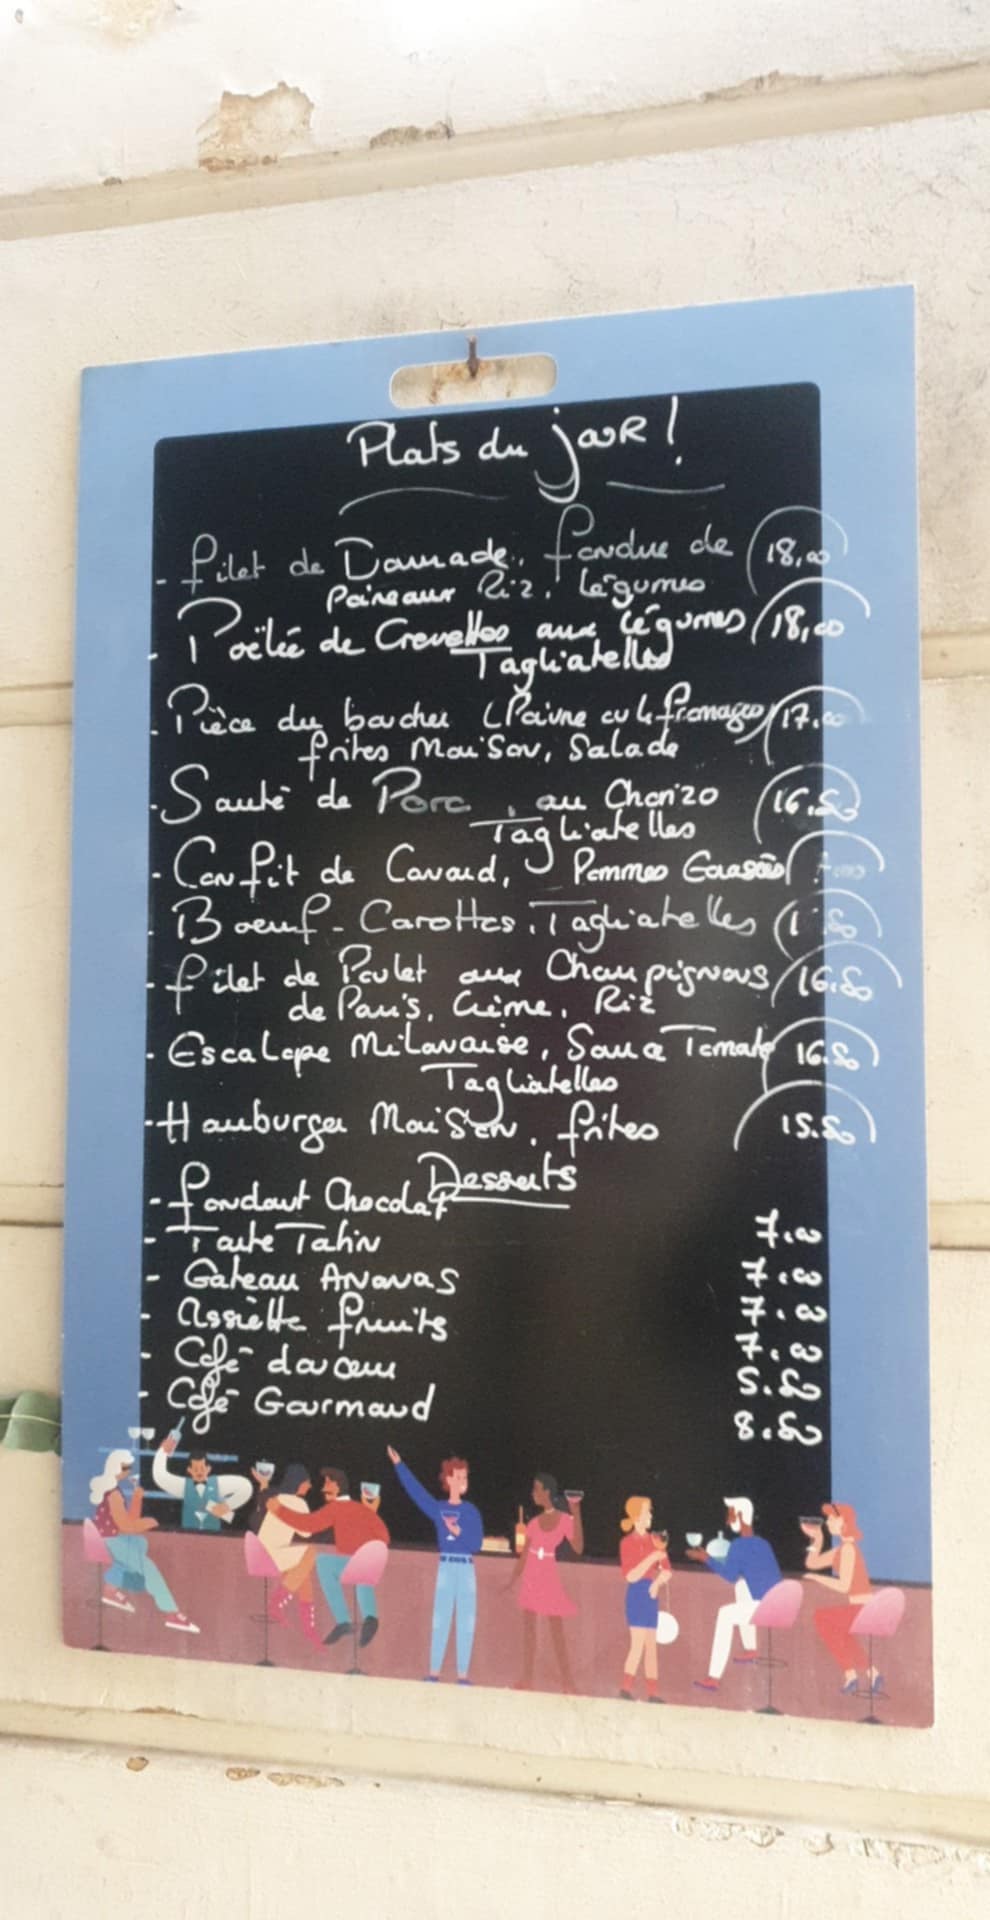 Plats du jouR !
- filet de Daurade, fondue de 18,00
Poireaux Riz, Légumes
- Poêlée de Crevettes aux Légumes 18,00
Tagliatelles
- Pièce du boucher (Poivre ou 4 fromages) 17.00
frites Maison, Salade
- Sauté de Porc, au Chorizo 16.50
Tagliatelles
- Confit de Canard, Pommes
- Boeuf - Carottes, Tagliatelles
- filet de Poulet aux Champignons 16.50
de Paris, Crème, Riz
- Escalope Milanaise, Sauce Tomate 16.50
Tagliatelles
- Hamburger Maison, frites 15.50
Desserts
- fondant Chocolat 7.00
- Tarte Tatin 7.00
- Gateau Ananas 7.00
- Assiette fruits 7.00
- Café douceur 5.50
- Café Gourmand 8.50